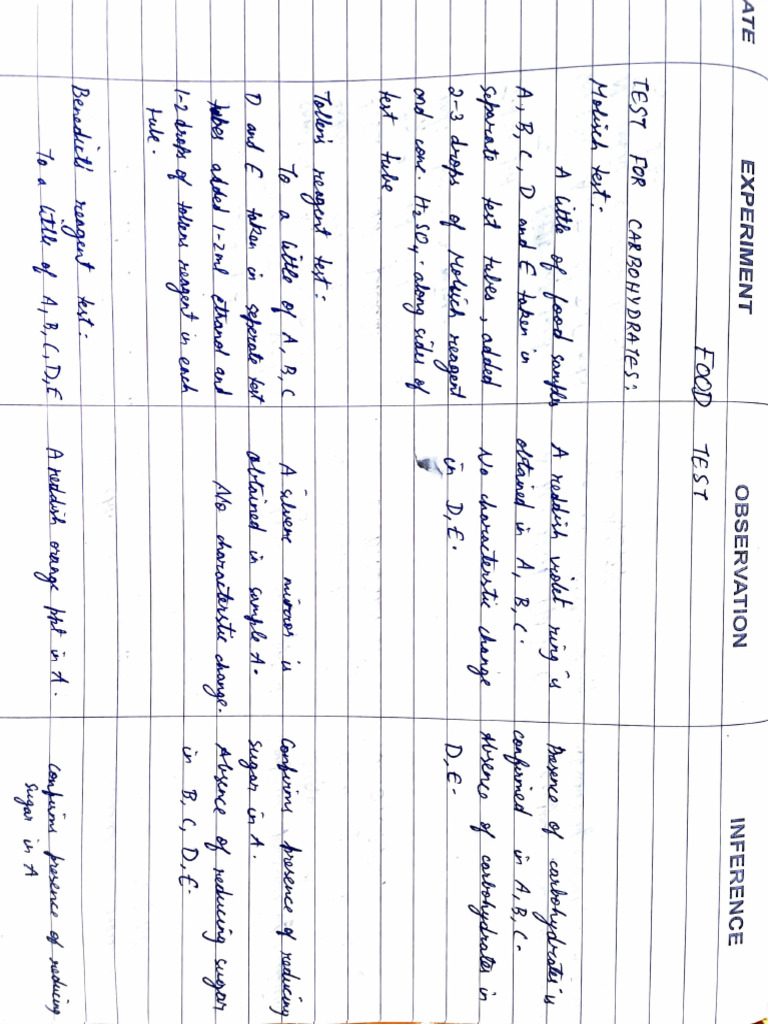 ATE
EXPERIMENT OBSERVATION INFERENCE
FOOD TEST
TEST FOR CARBOHYDRATES:
Molisch test:-
A little of food samples
A, B, C, D and E taken in
separate test tubes, added
2-3 drops of Molisch reagent
and conc. H₂SO₄ along sides of
test tube
A reddish violet ring is
obtained in A, B, C.
No characterstic change
in D, E.
Presence of carbohydrates is
confirmed in A, B, C.
Absence of carbohydrates in
D, E.
Tollens reagent test:-
To a little of A, B, C
D and E taken in seperate test
tubes added 1-2ml ethanol and
1-2 drops of tollens reagent in each
tube.
A silvere mirror is
obtained in sample A.
No characterstic change.
Confirms presence of reducing
sugar in A.
Absence of reducing sugar
in B, C, D, E.
Benedict's reagent test:-
To a little of A, B, C, D, E
A reddish orange ppt in A.
Confirms presence of reducing
sugar in A